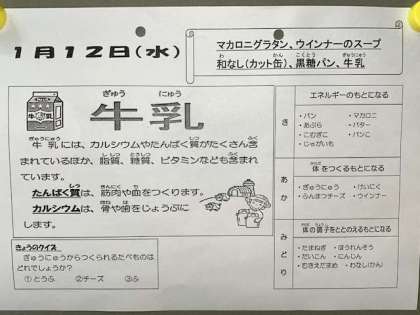 1月12日(水)
マカロニグラタン、ウインナーのスープ
和なし(カット缶)、黒糖パン、牛乳
牛乳
牛乳には、カルシウムやたんぱく質がたくさん含
まれているほか、脂質、糖質、ビタミンなども含まれ
ています。
たんぱく質は、筋肉や血をつくります。
カルシウムは、骨や歯をじょうぶに
します。
きょうのクイズ
ぎゅうにゅうからつくられるたべものは
どれでしょうか?
①とうふ ②チーズ ③ふ
き
エネルギーのもとになる
・パン ・マカロニ
・あぶら ・バター
・こむぎこ ・パンこ
・じゃがいも
あか
体をつくるもとになる
・ぎゅうにゅう ・けいにく
・ふんまつチーズ ・ウインナー
みどり
体の調子をととのえるもとになる
・たまねぎ ・ほうれんそう
・だいこん ・にんじん
・むきえだまめ ・わなし(かん)